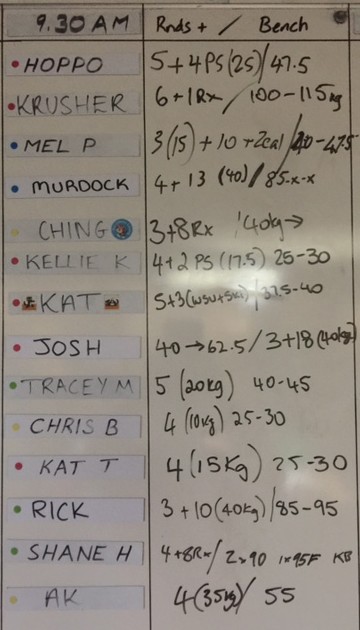 9.30 AM Rnds + / Bench
HOPPO 5 + 4 PS (25) / 47.5
KRUSHER 6 + 1 Rx / 100 - 115kg
MEL P 3 (15) + 10 + 2cal / 40 - 47.5
MURDOCK 4 + 13 (40) / 85-x-x
CHING 3+8 Rx / 40kg →
KELLIE K 4 + 2 PS (17.5) 25-30
KAT 5+3 / 37.5-40
JOSH 40 → 62.5 / 3+18 (40kg)
TRACEY M 5 (20kg) 40-45
CHRIS B 4 (10kg) 25-30
KAT T 4 (15kg) 25-30
RICK 3 + 10 (40kg) / 85-95
SHANE H 4+8Rx / 2x90 1x95F KB
AK 4 (35kg) / 55